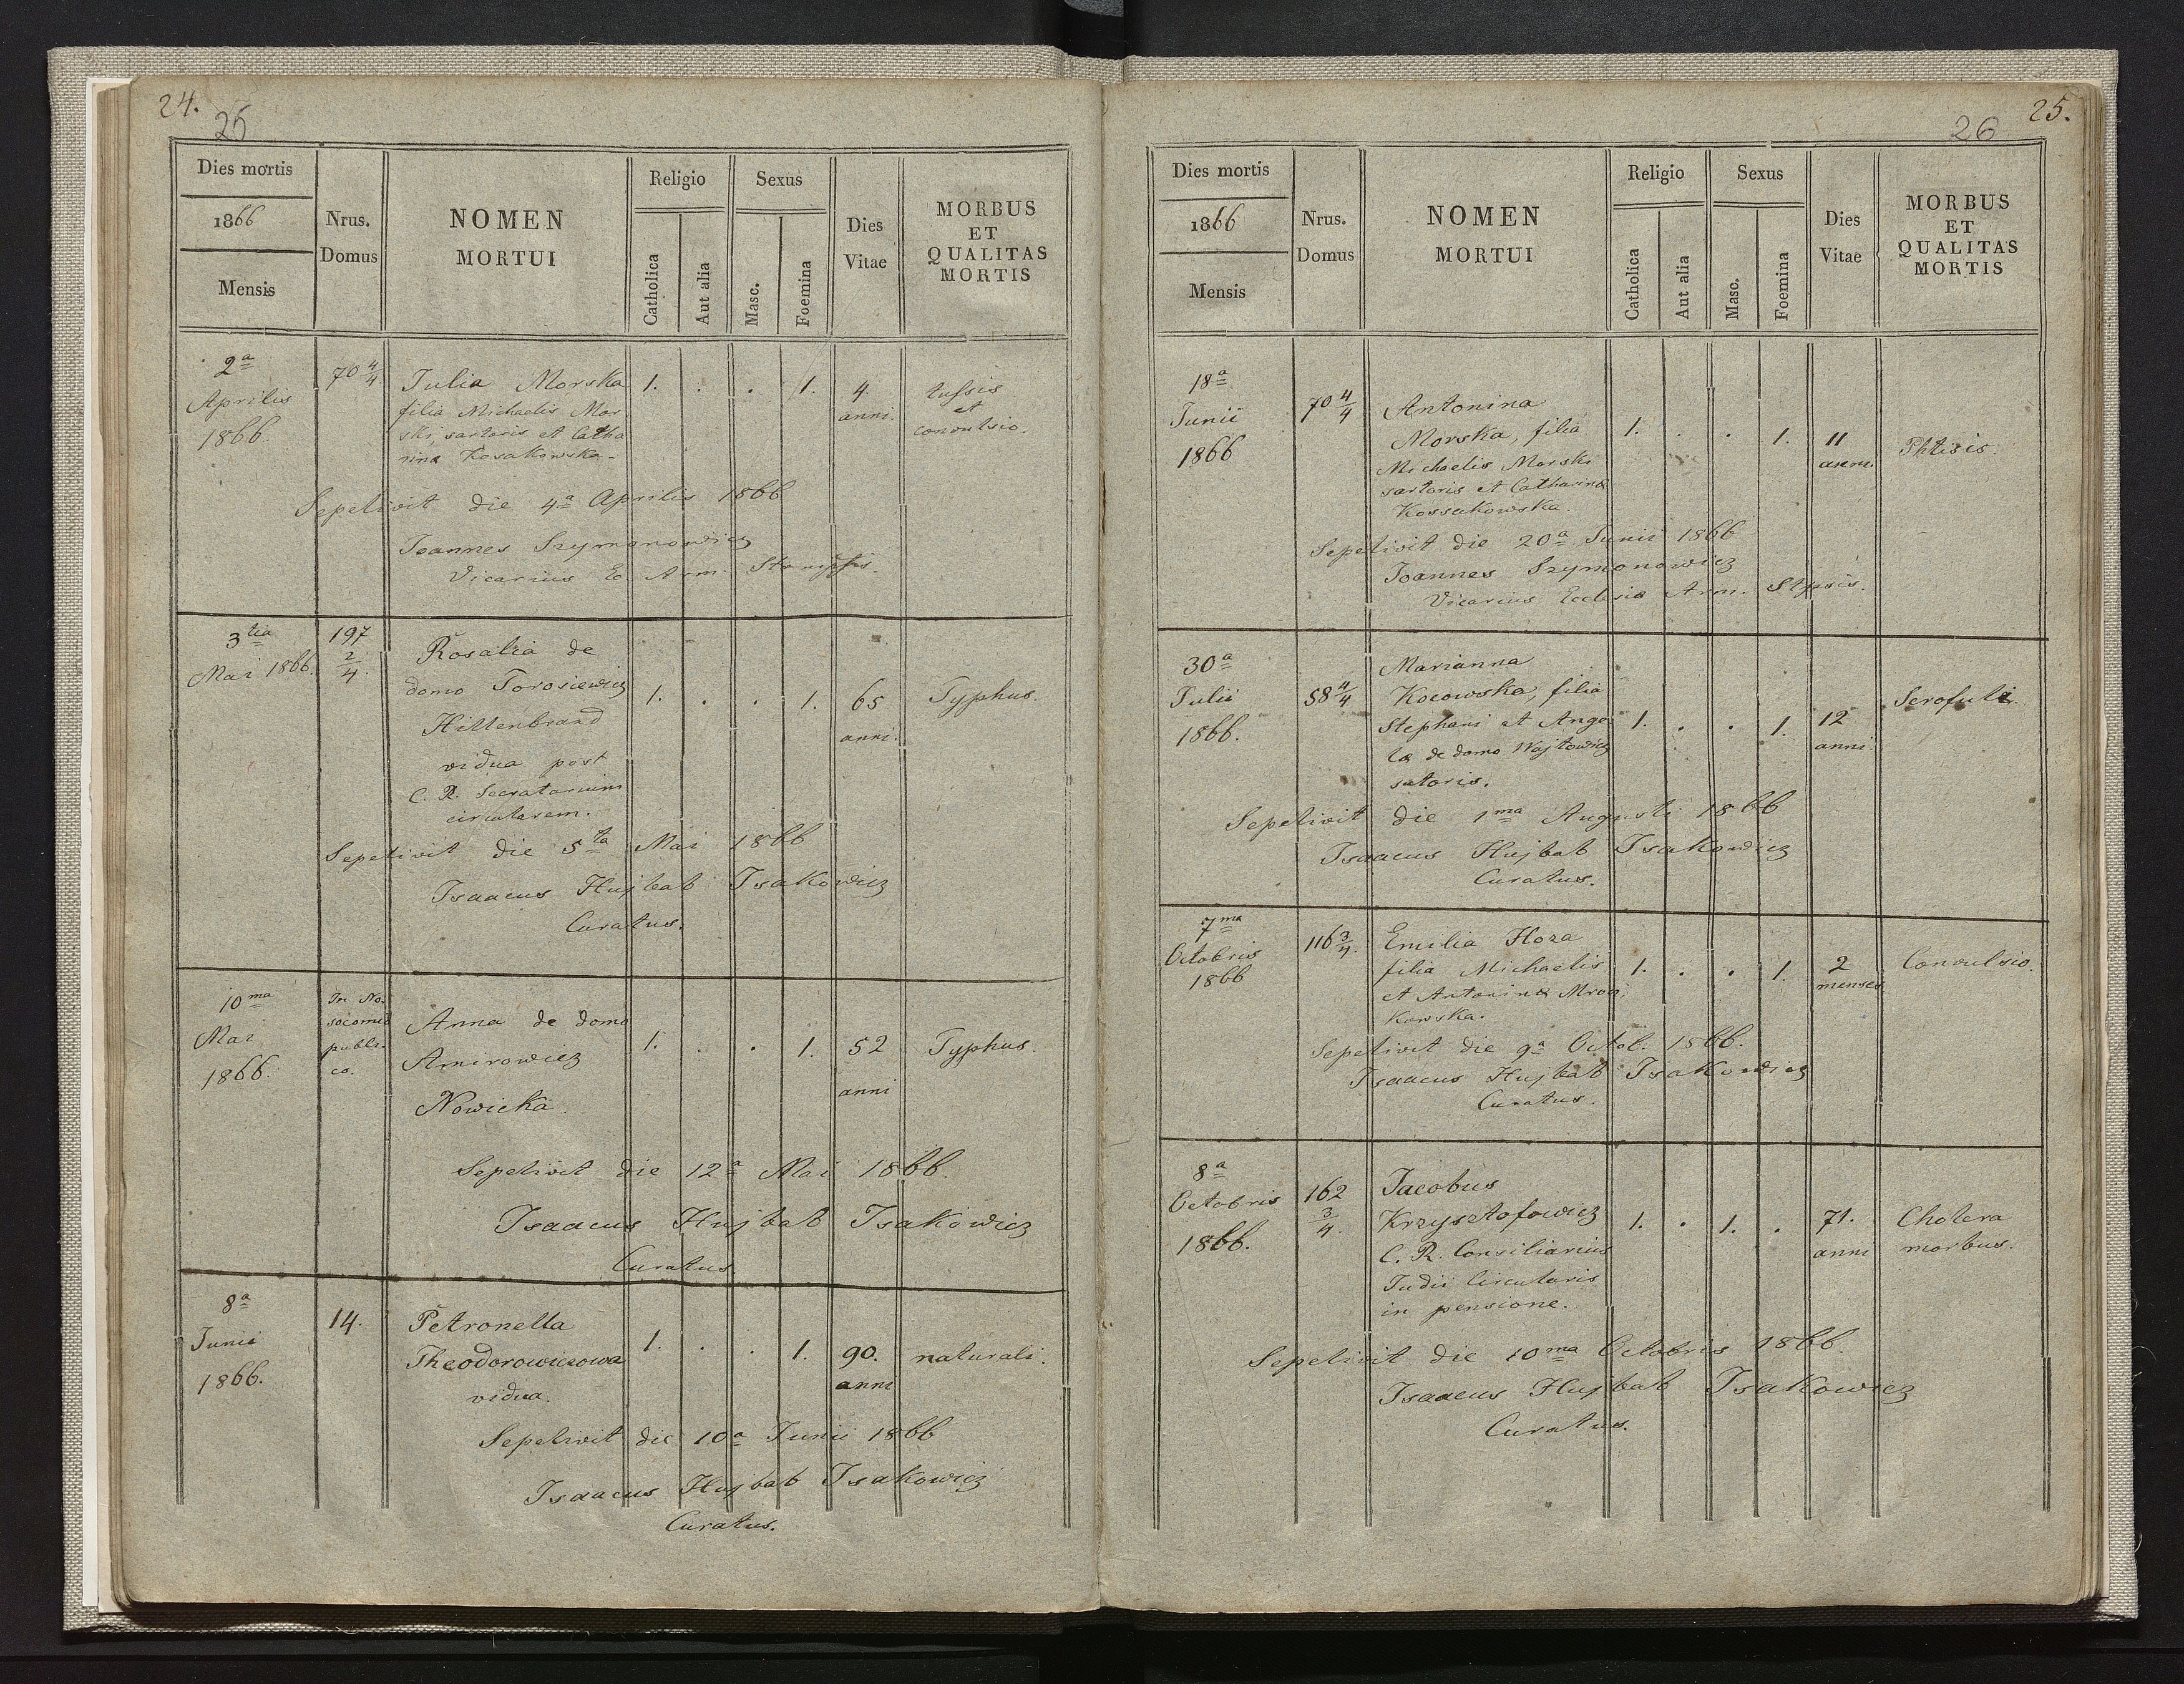 24.
25
Dies mortis
1866
Mensis
Nrus.
Domus
NOMEN
MORTUI
Religio
Catholica
Aut alia
Sexus
Masc.
Foemina
Dies
Vitae
MORBUS
ET
QUALITAS
MORTIS
2a
Aprilis
1866.
70 4/4
Julia Morska
filia Michaelis Mor
ski, sartoris et Catha
rina Kosakowska-
1. . . 1.
4
anni.
tussis
et
convulsio.
Sepelivit die 4a Aprilis 1866
Joannes Szymonowicz
Vicarius Ec. Arm.
3tia
Mai 1866.
197
2/4.
Rosalia de
domo Torosiewicz
Hillenbrand
vidua post
C. R. Secratarium
circularem.
1. . . 1.
65
anni.
Typhus.
Sepelivit die 5ta Mai 1866
Isaacus Hujbab Isakowicz
Curatus.
10ma
Mai
1866.
In No-
socomio
publi-
co.
Anna de domo
Amirowicz
Nowicka.
1. . . 1.
52
anni
Typhus.
Sepelivit die 12a Mai 1866.
Isaacus Hujbab Isakowicz
Curatus
8a
Junii
1866.
14.
Petronella
Theodorowiczowa
vidua.
1. . . 1.
90.
anni
naturali.
Sepelivit die 10a Junii 1866
Isaacus Hujbab Isakowicz
Curatus.
25.
26
Dies mortis
1866
Mensis
Nrus.
Domus
NOMEN
MORTUI
Religio
Catholica
Aut alia
Sexus
Masc.
Foemina
Dies
Vitae
MORBUS
ET
QUALITAS
MORTIS
18a
Junii
1866
70 4/4
Antonina
Morska, filia
Michaelis Morski
sartoris et Catharina
Kossakowska.
1. . . 1.
11
anni.
Phtisis.
Sepelivit die 20a Junii 1866
Joannes Szymonowicz
Vicarius Ecclesia Arm.
30a
Julii
1866.
58 4/4
Marianna
Kocowska, filia
Stephani et Ange
la de domo Wojtowicz
sutoris.
1. . . 1.
12
anni
Sepelivit die 1ma Augusti 1866
Isaacus Hujbab Isakowicz
Curatus.
7ma
Octobris
1866
116 3/4.
Emilia Hoza
filia Michaelis
et Antonina Mroz
kowska.
1. . . 1.
2
menses
Convulsio.
Sepelivit die 9a Octob. 1866.
Isaacus Hujbab Isakowicz
Curatus.
8a
Octobris
1866.
162
3/4.
Jacobus
Krzysztofowicz
C. R. Consiliarius
Judii Circularis
in pensione.
1. . 1. .
71.
anni
Cholera
morbus.
Sepelivit die 10ma Octobris 1866.
Isaacus Hujbab Isakowicz
Curatus.